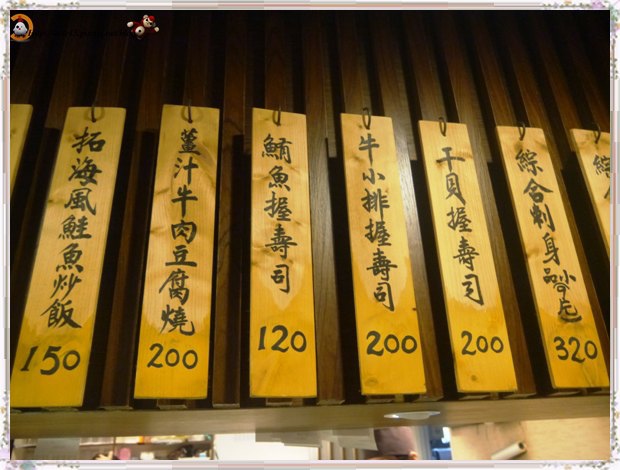 拓海風鮭魚炒飯
150
薑汁牛肉豆腐燒
200
鮪魚握壽司
120
牛小排握壽司
200
干貝握壽司
200
綜合刺身
320
綜